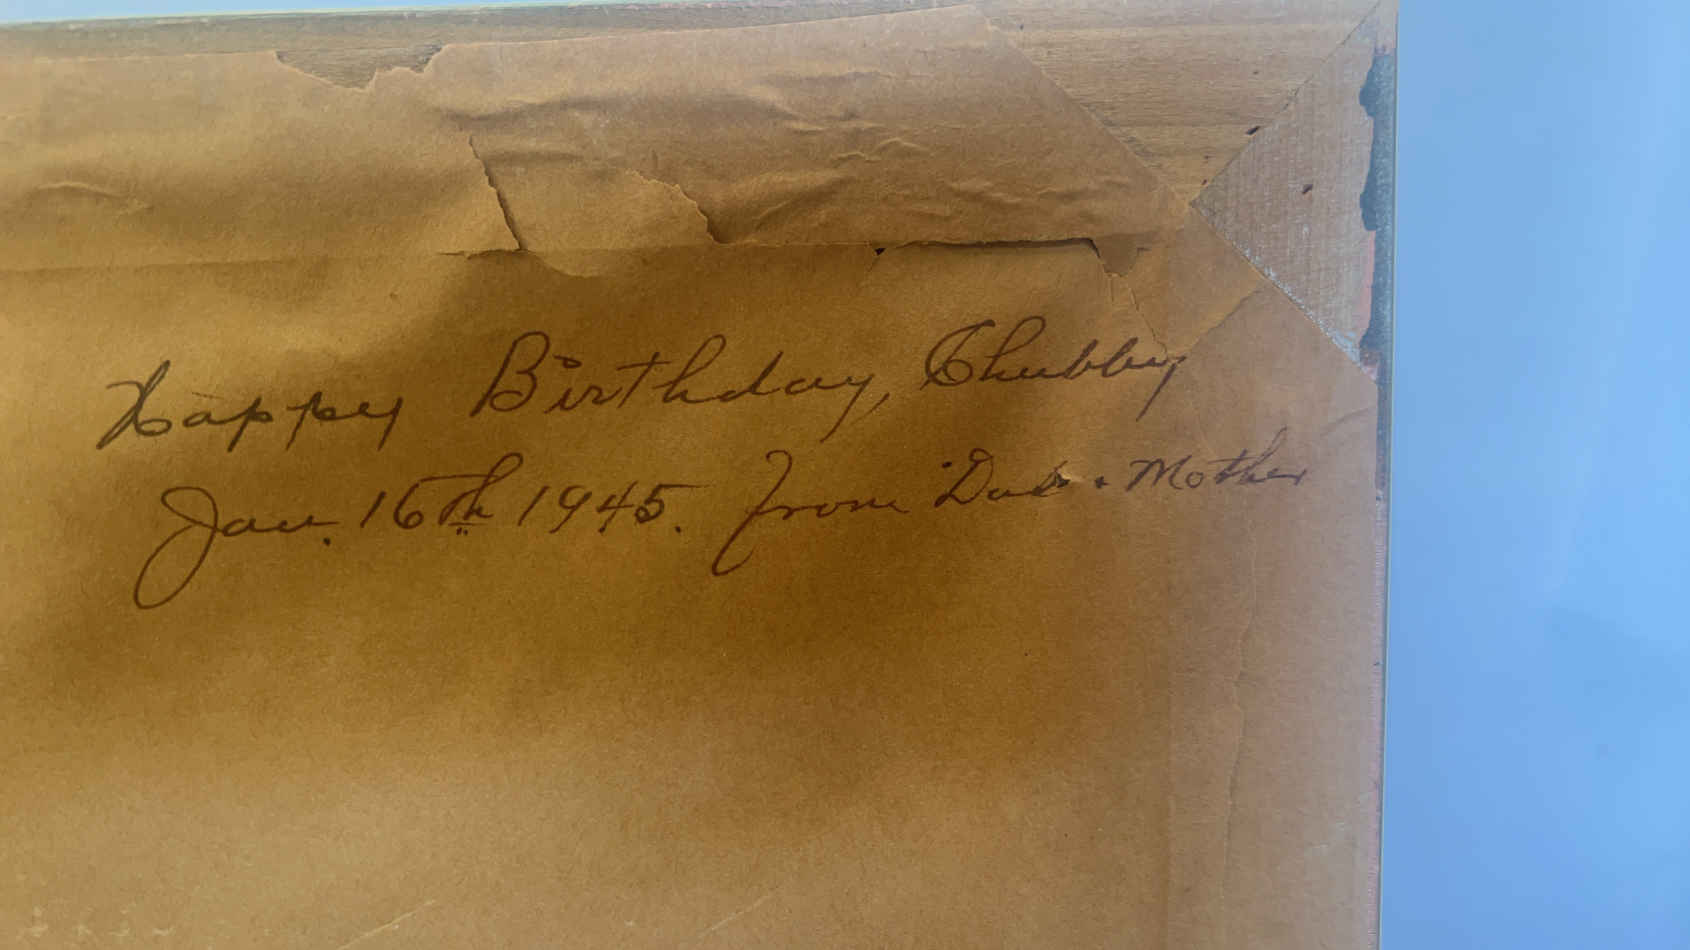 Happy Birthday, Chubby
Jan. 16th 1945. from Dad & Mother